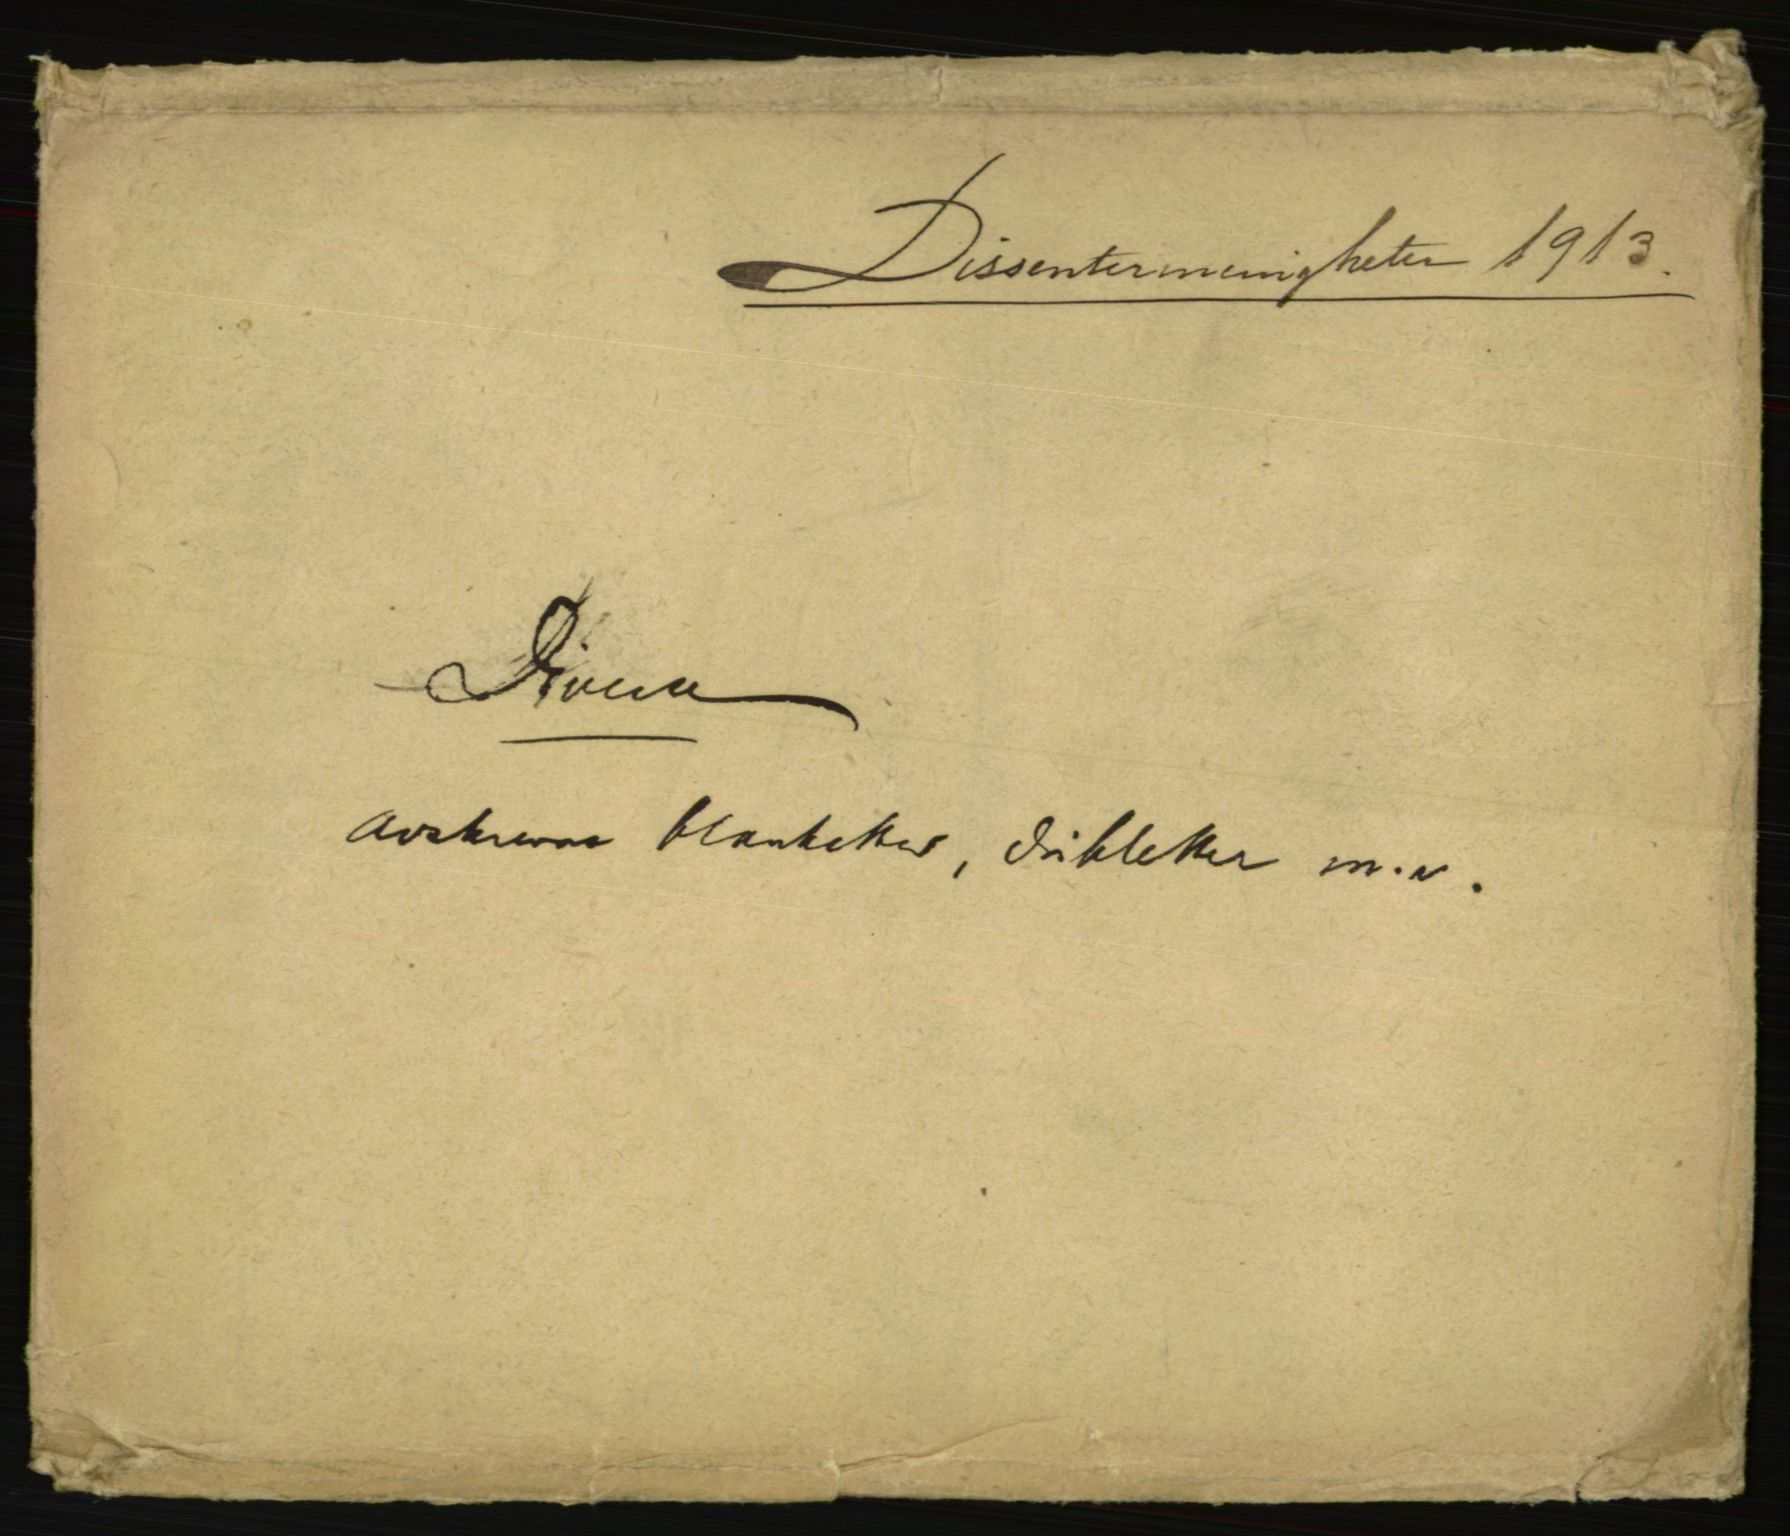 Dissentermenigheter 1913.
Diverse
avskrevne blanketter, dubletter m.v.